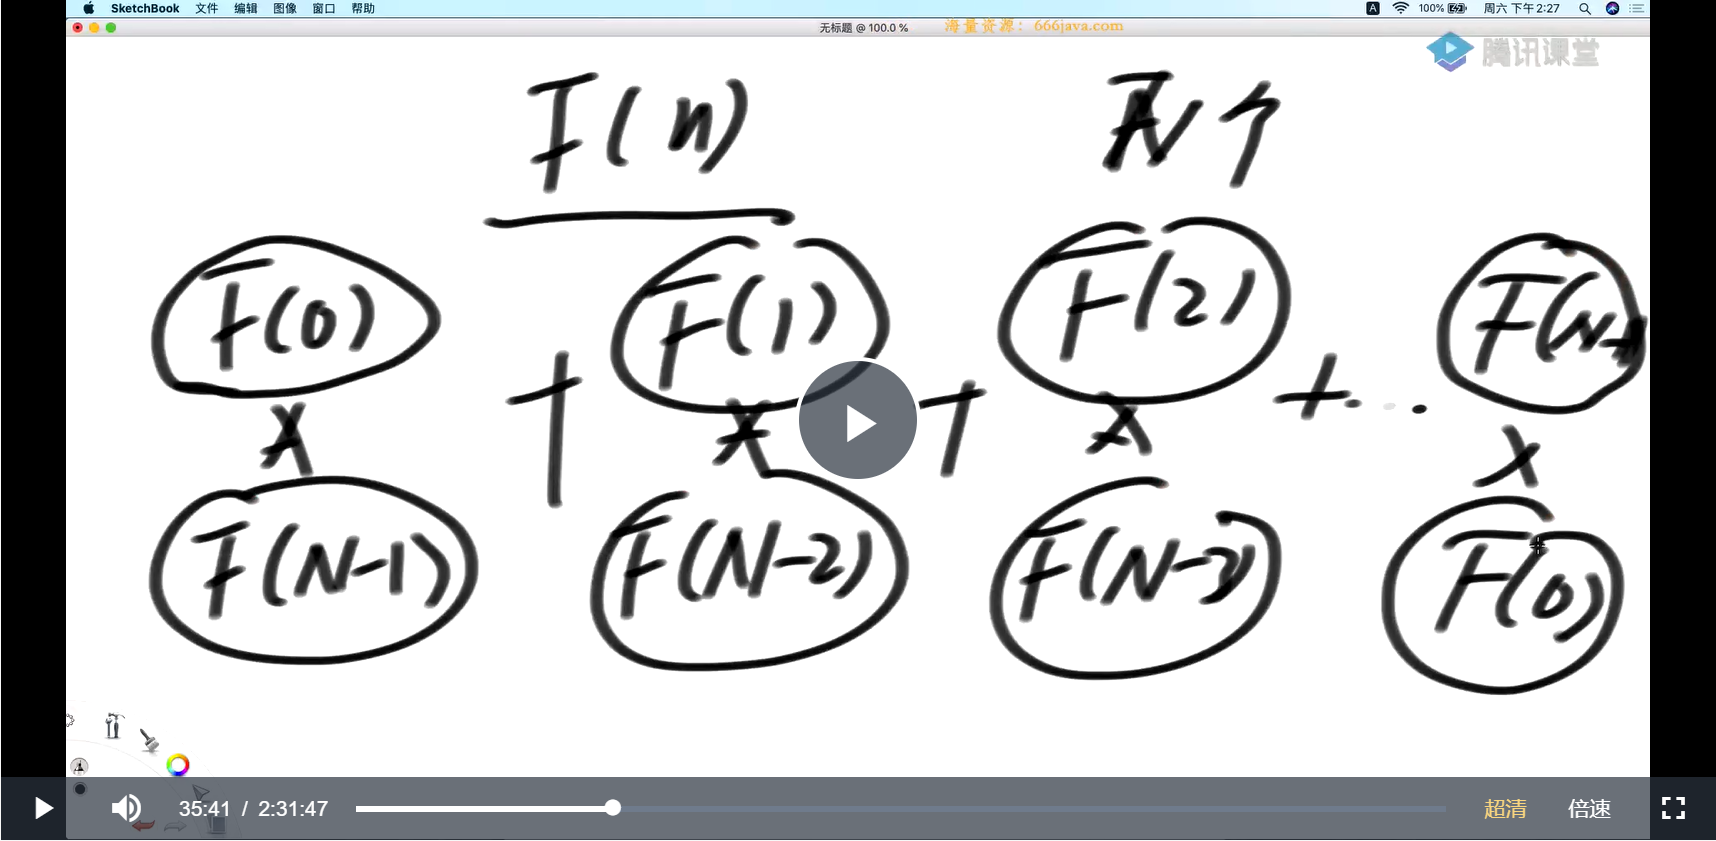 SketchBook 文件 编辑 图像 窗口 帮助 A 100% 周六 下午2:27
无标题 @ 100.0 % 海量资源：666java.com
腾讯课堂
F(n) N个
F(0) F(1) F(2) F(N-1
X + X + X +... X
F(N-1) F(N-2) F(N-3) F(0)
35:41 / 2:31:47 超清 倍速